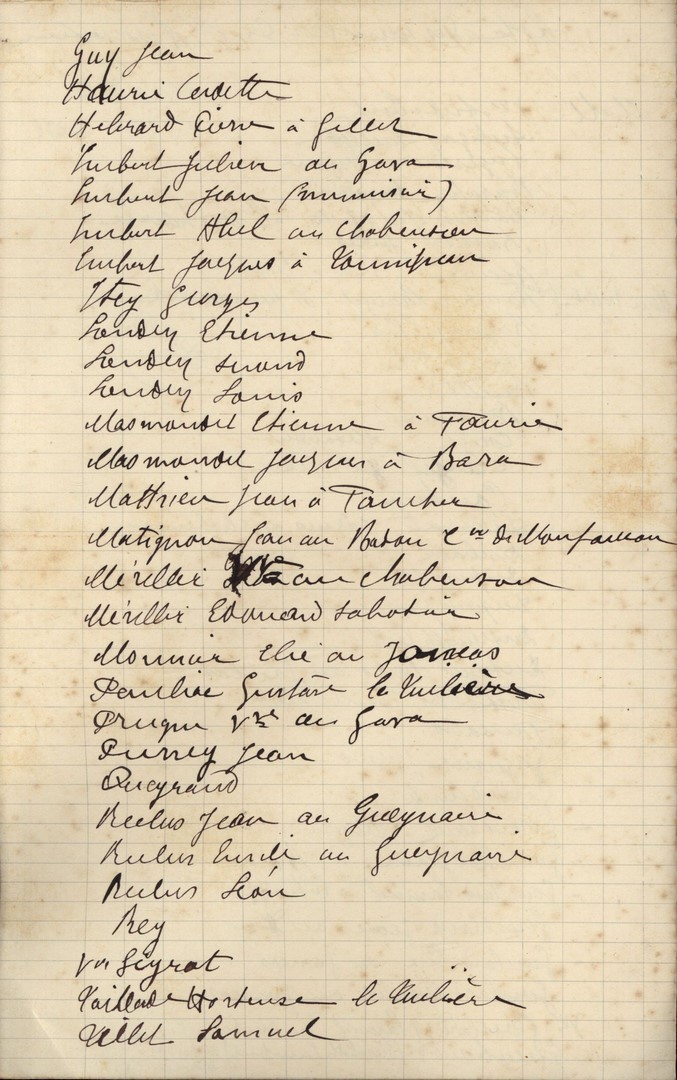 Guy Jean
Haurie Cadette
Hebrard Pierre à Gillet
Imbert Julien au Gava
Imbert Jean (Commissair)
Imbert Abel au Chabensou
Imbert Jacques à
Itey Georges
Landey Etienne
Landey
Landey Louis
Masmondet Etienne à Faurie
Masmondet Jacques à Bara
Mathieu Jean à Faucher
Matignon Jean au Badou Cne de Monfaucon
Mérillier Vve au Chabensou
Mérillier Edouard Sabotier
Monnier Elie au
Pauliac Gustave la Tuilière
Vve au Gava
Jean
Queyraud
Reclus Jean au Gueynaire
Reclus Emile au Gueynaire
Reclus Léon
Rey
Vve Seyrat
Vaillade Hortense la Tuilière
Villet Samuel